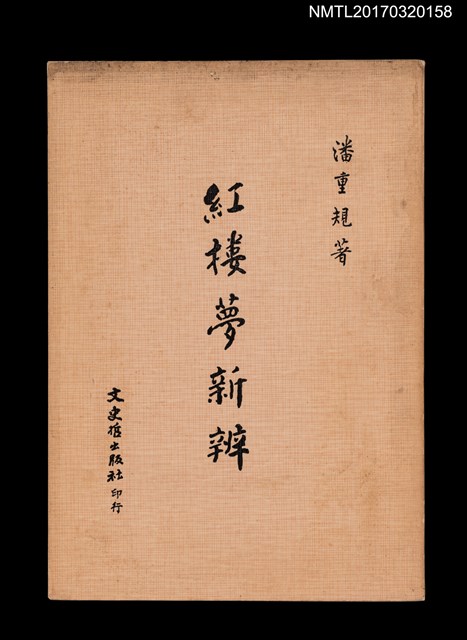 NMTL20170320158
潘重規著
紅樓夢新辨
文史哲出版社印行